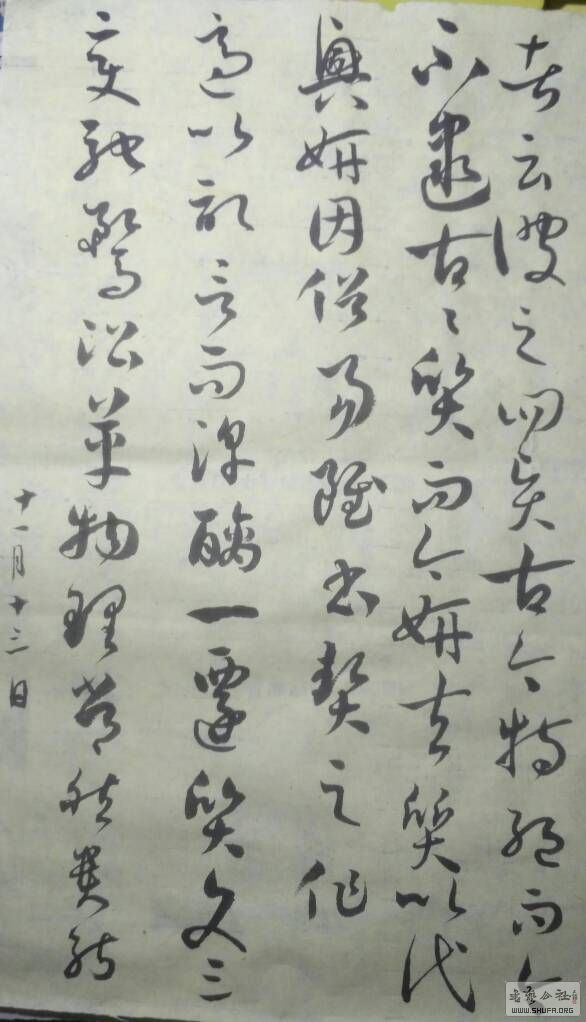 者云彼之四賢古今特絕而今
不逮古〻質而今妍夫質以代
興妍因俗易雖書契之作
適以記言而淳醨一遷質文三
變馳騖沿革物理常然貴能
十一月十三日
書藝公社
WWW.SHUFA.ORG